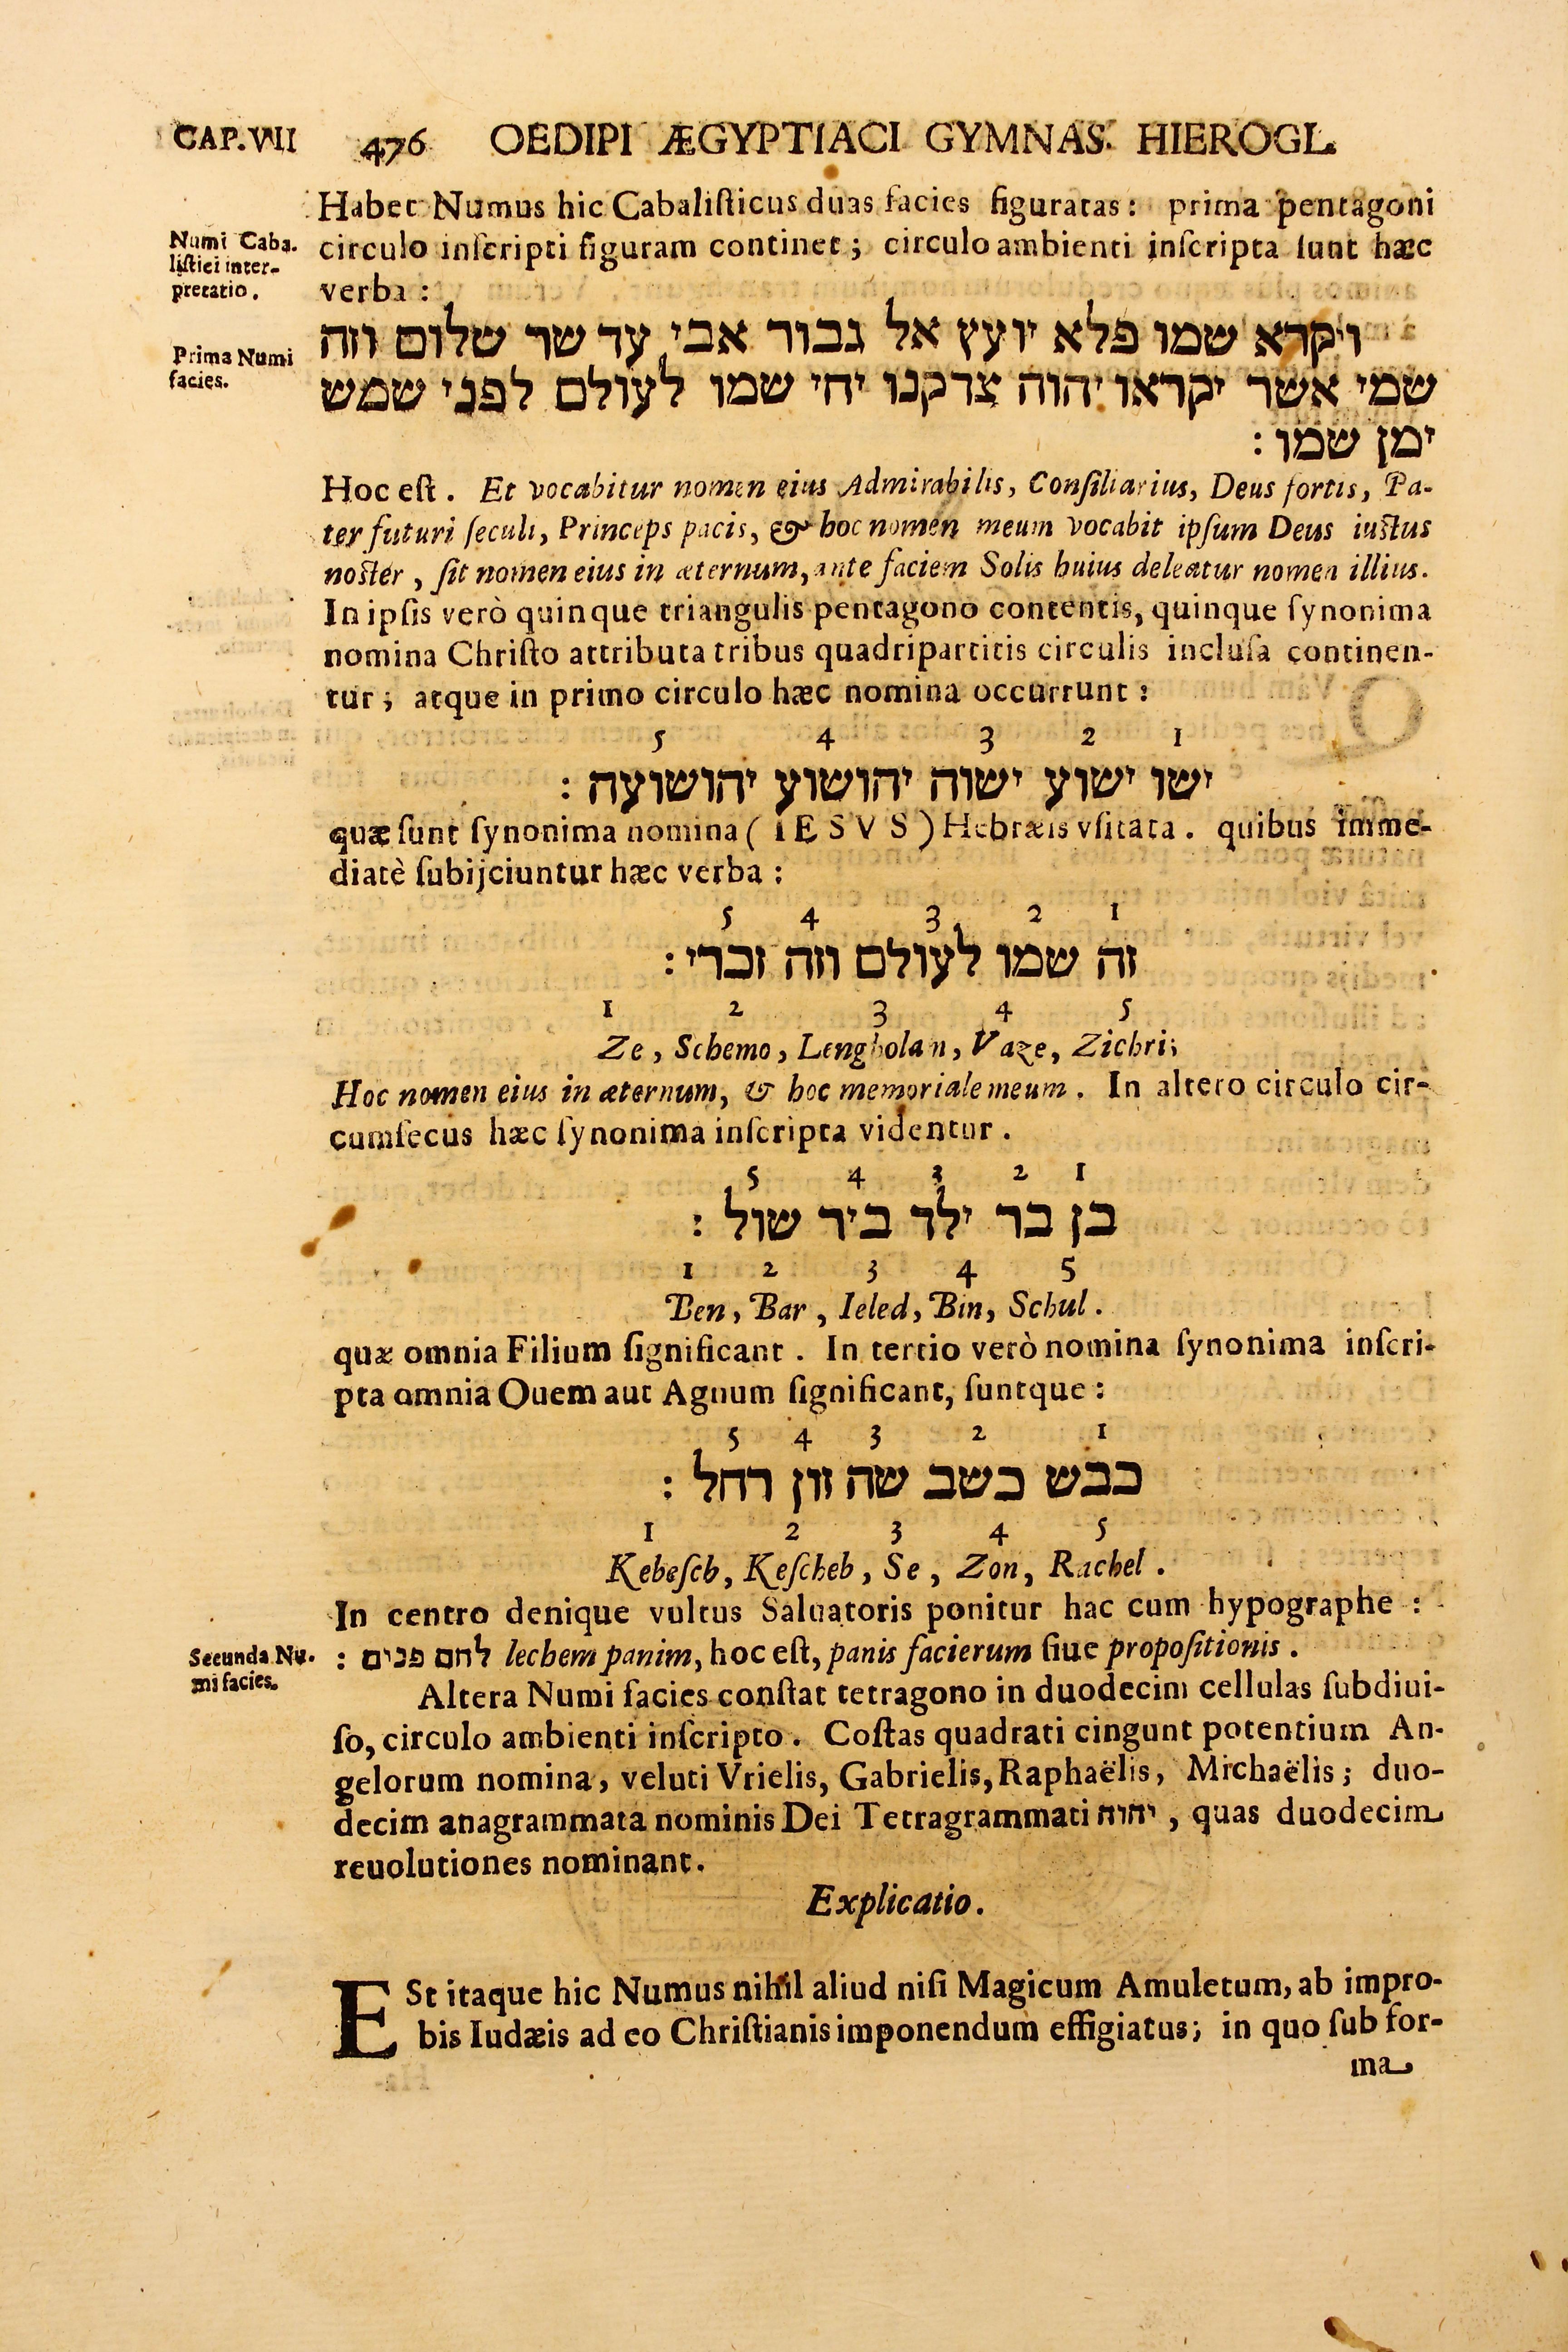 CAP.VII 476 OEDIPI ÆGYPTIACI GYMNAS. HIEROGL.
Habet Numus hic Cabaliſticus duas facies figuratas: prima pentagoni
Numi Caba-
liſtici inter-
pretatio.
circulo inſcripti figuram continet; circulo ambienti inſcripta ſunt hæc
verba:
Prima Numi
facies.
ויקרא שמו פלא יועץ אל גבור אבי עד שר שלום וזה
שמי אשר יקראו יהוה צדקנו יחי שמו לעולם לפני שמש
ימן שמו:
Hoc eſt. Et vocabitur nomen eius Admirabilis, Conſiliarius, Deus fortis, Pa-
ter futuri ſeculi, Princeps pacis, & hoc nomen meum vocabit ipſum Deus iuſtus
noſter, ſit nomen eius in æternum, ante faciem Solis huius deleatur nomen illius.
In ipſis verò quinque triangulis pentagono contentis, quinque ſynonima
nomina Chriſto attributa tribus quadripartitis circulis incluſa continen-
tur; atque in primo circulo hæc nomina occurrunt:
5 4 3 2 1
ישו ישוע ישוה יהושוע יהושועה:
quæ ſunt ſynonima nomina (IESVS) Hebræis vſitata. quibus imme-
diatè ſubijciuntur hæc verba:
5 4 3 2 1
זה שמו לעולם וזה זכרי:
1 2 3 4 5
Ze, Schemo, Lengholan, Vaze, Zichri;
Hoc nomen eius in æternum, & hoc memoriale meum. In altero circulo cir-
cumſecus hæc ſynonima inſcripta videntur.
5 4 3 2 1
בן בר ילד ביר שול:
1 2 3 4 5
Ben, Bar, Ieled, Bin, Schul.
quæ omnia Filium ſignificant. In tertio verò nomina ſynonima inſcri-
pta omnia Ouem aut Agnum ſignificant, ſuntque:
5 4 3 2 1
כבש כשב שה זון רחל:
1 2 3 4 5
Kebeſch, Keſcheb, Se, Zon, Rachel.
In centro denique vultus Saluatoris ponitur hac cum hypographe:
Secunda Nu-
mi facies.
לחם פנים: lechem panim, hoc eſt, panis facierum ſiue propoſitionis.
Altera Numi facies conſtat tetragono in duodecim cellulas ſubdiui-
ſo, circulo ambienti inſcripto. Coſtas quadrati cingunt potentium An-
gelorum nomina, veluti Vrielis, Gabrielis, Raphaëlis, Michaëlis; duo-
decim anagrammata nominis Dei Tetragrammati יהוה, quas duodecim
reuolutiones nominant.
Explicatio.
ESt itaque hic Numus nihil aliud niſi Magicum Amuletum, ab impro-
bis Iudæis ad eo Chriſtianis imponendum effigiatus; in quo ſub for-
ma